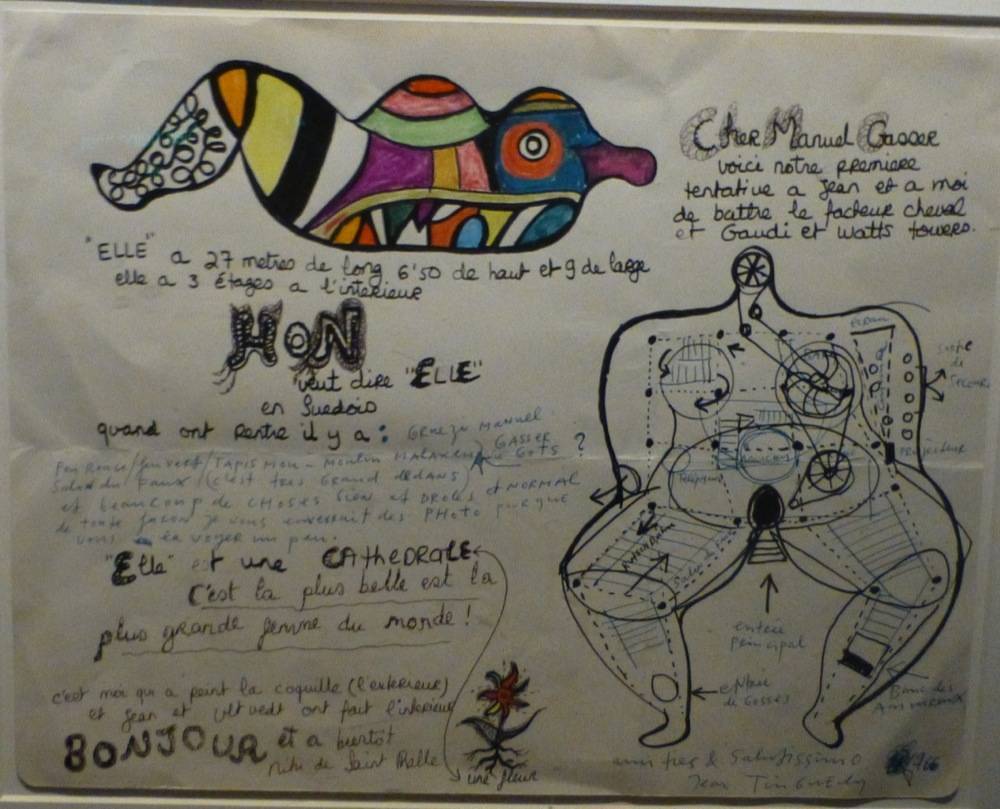 Cher Manuel Gasser
voici notre premiere
tentative a Jean et a moi
de battre le facteur cheval
et Gaudi et Watts towers.
"ELLE" a 27 metres de long 6'50 de haut et 9 de large
elle a 3 étages a l'interieur
HON
veut dire "ELLE"
en Suedois
quand ont rentre il y a :
MANUEL
GASSER
?
Feu Rouge / feu vert / TAPIS MOU - MOULIN
(c'est tres Grand dedans)
et beaucoup de CHOSES bien et DROLES et NORMAL
de toute facon je vous enverrait des PHOTO pour que
vous en voyer un peu.
"Elle" est une CAthEDRALE
C'est la plus belle est la
plus grande femme du monde !
c'est moi qui a peint la coquille (l'exterieur)
et Jean et Ultvedt ont fait l'interieur
BONJOUR et a bientôt
Niki de Saint Phalle
une fleur
ecran
sortie
de
secours
projecteur
entrée
principal
entrée
de Gosses
Banc des
Amoureux
amities & Salutissimo
Jean Tinguely